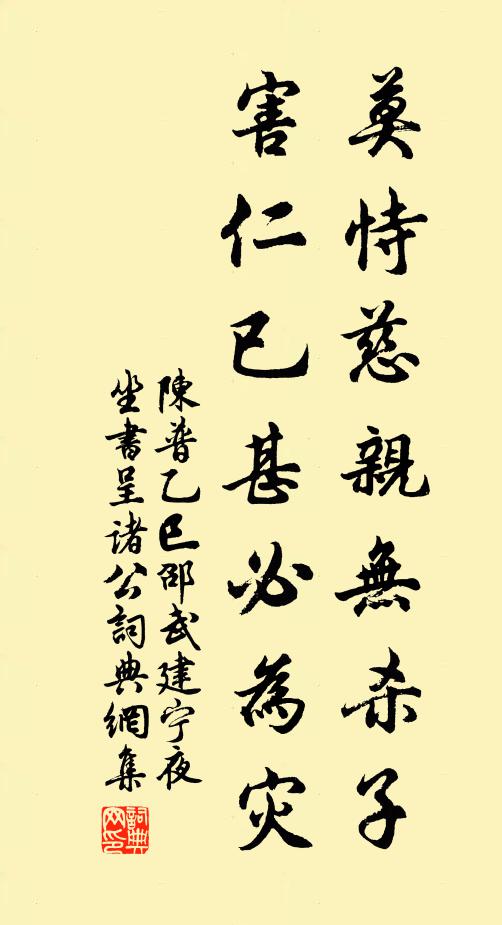 莫恃慈親無杀子
害仁已甚必為灾
陳普乙巳邵武建宁夜
坐書呈諸公詞典網集
詞典
网印